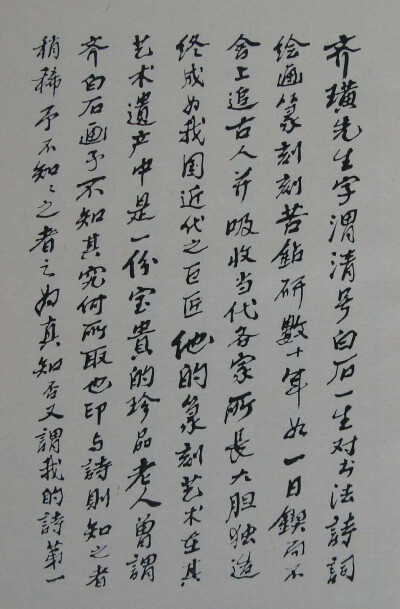 齐璜先生字渭清号白石一生对书法詩詞
绘画篆刻刻苦鉆研數十年如一日鍥而不
舍上追古人并吸收当代各家所長大胆独造
终成为我国近代之巨匠他的篆刻艺术在其
艺术遺产中是一份宝貴的珍品老人曾謂
齐白石画予不知其究何所取也印与詩則知之者
稍稀予不知々之者之为真知否又謂我的詩第一